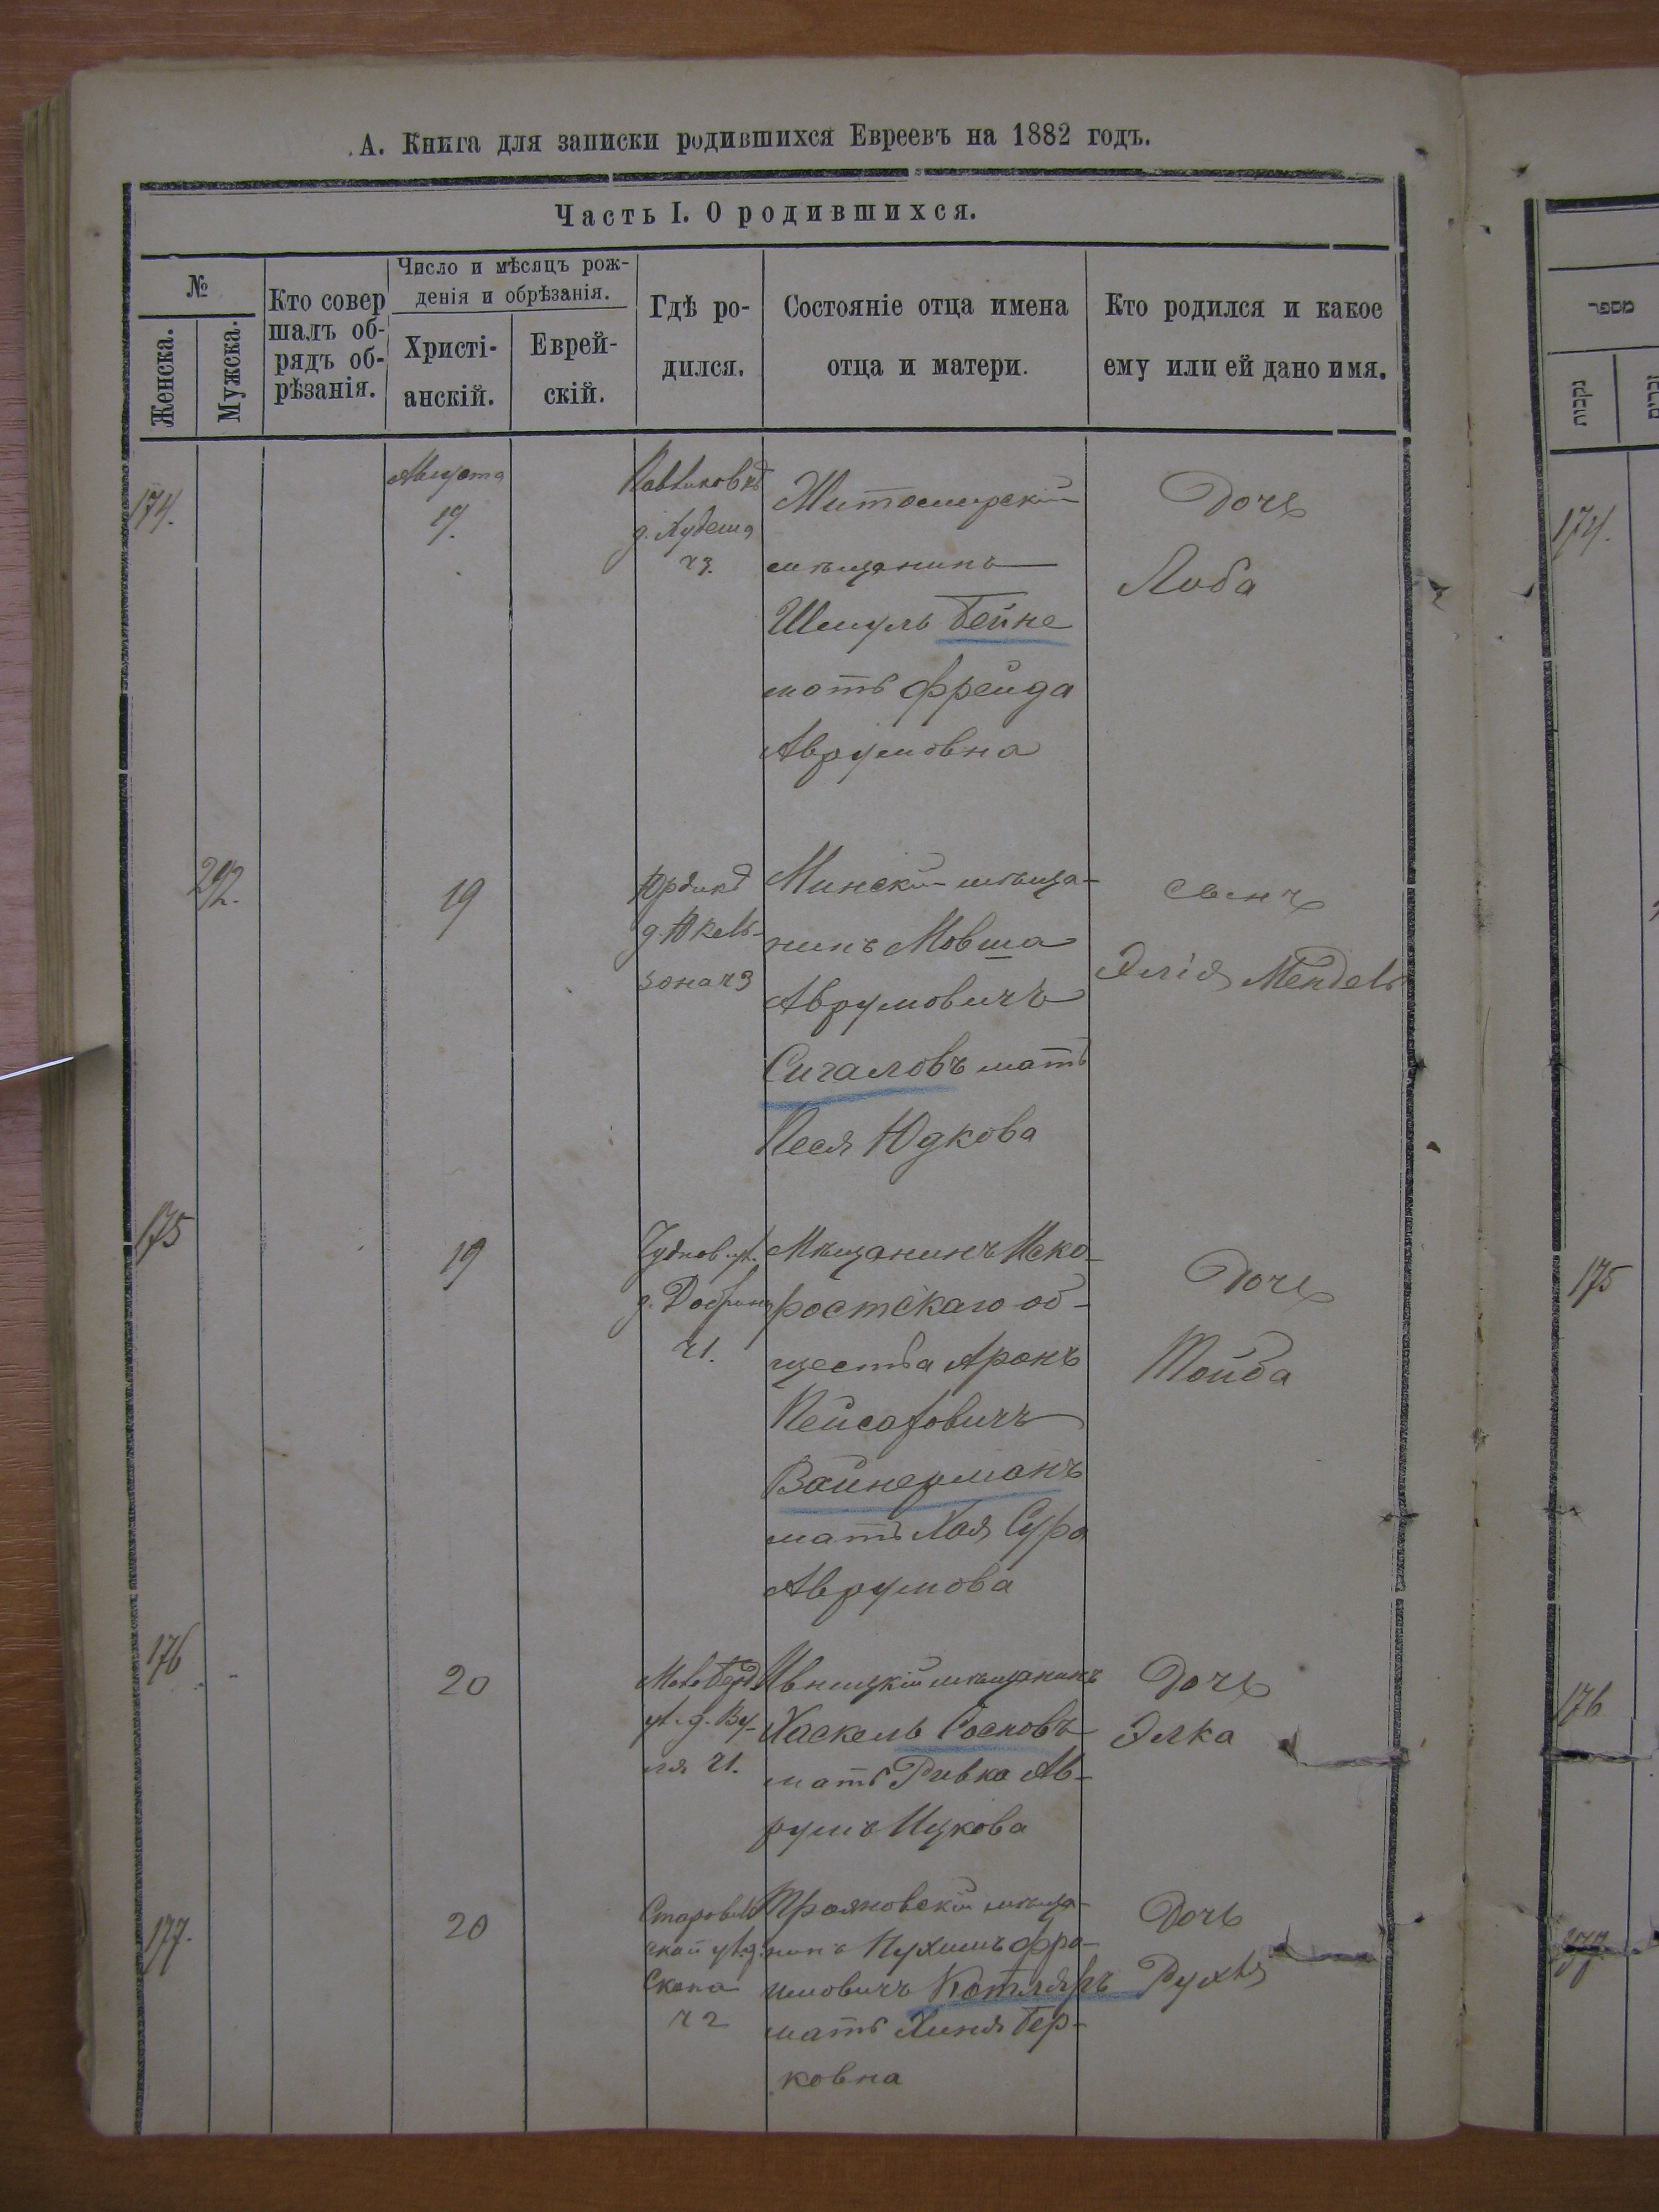 А. Книга для записки родившихся Евреевъ на 1882 годъ.
Часть I. О родившихся.
№
Женска.
Мужска.
Кто совер
шалъ об-
рядъ об-
рѣзанія.
Число и мѣсяцъ рож-
денія и обрѣзанія.
Христі-
анскій.
Еврей-
скій.
Гдѣ ро-
дился.
Состояніе отца имена
отца и матери.
Кто родился и какое
ему или ей дано имя.
174.
Августа
19.
ч3.
Житомирскій
мѣщанинъ
Шмуль Бейне
мать Фрейда
Аврумовна
Дочь
Люба
292.
19
зона ч3
Минскій мѣща-
нинъ Мовша
Аврумовичъ
Сигаловъ мать
Песя Юдкова
сынъ
Элія Мендель
175
19
Чуднов. ул.
ч1.
Мѣщанинъ Иско-
ростскаго об-
щества Аронъ
Пейсаховичъ
Вайнерманъ
мать Хая Сура
Аврумова
Дочь
Тойба
176
20
ул. д. Ву-
ля ч1.
Ивницкій мѣщанинъ
Хаскель Сосновъ
мать Ривка Ав-
румъ Ицкова
Дочь
Элка
177.
20
ч2
Трояновскій мѣща-
нинъ Нухимъ Фро-
имовичъ Котляръ
мать Хиня Бер-
ковна
Дочь
Рухля
מספר
נקבות
זכרים
174.
175
176
177